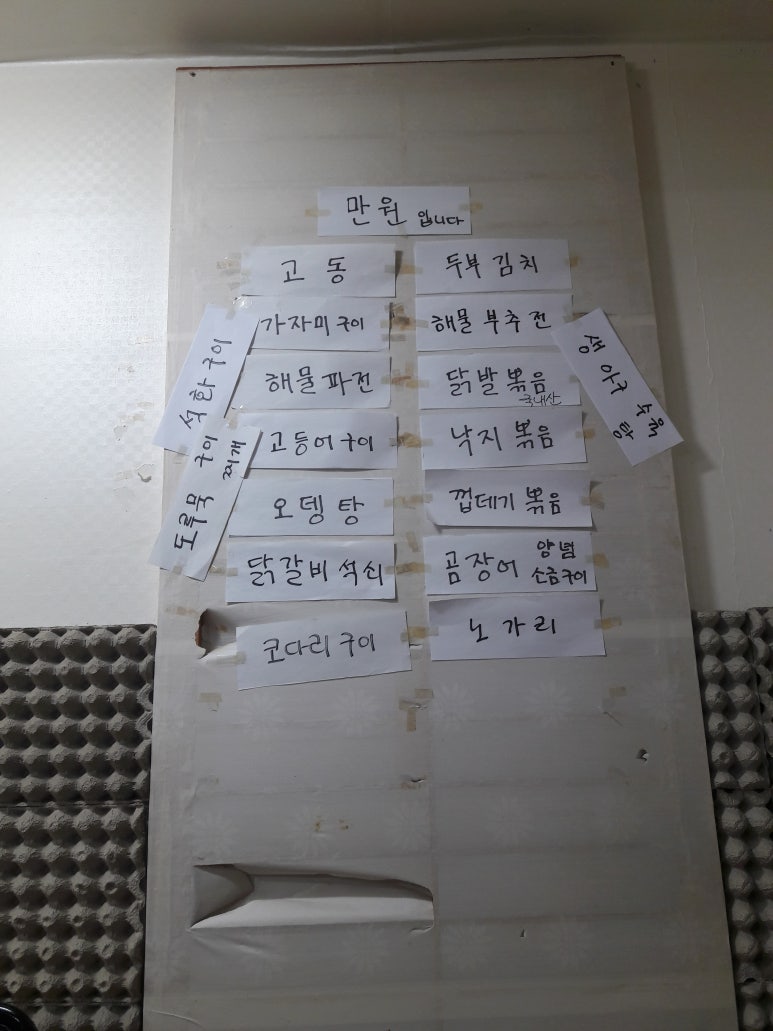 만원 입니다
고동
두부김치
가자미구이
해물부추전
해물파전
닭발볶음
국내산
고등어구이
낙지볶음
오뎅탕
껍데기볶음
닭갈비석쇠
곰장어 양념
소금구이
코다리구이
노가리
석화구이
도루묵 구이
찌개
생아구 수육
탕